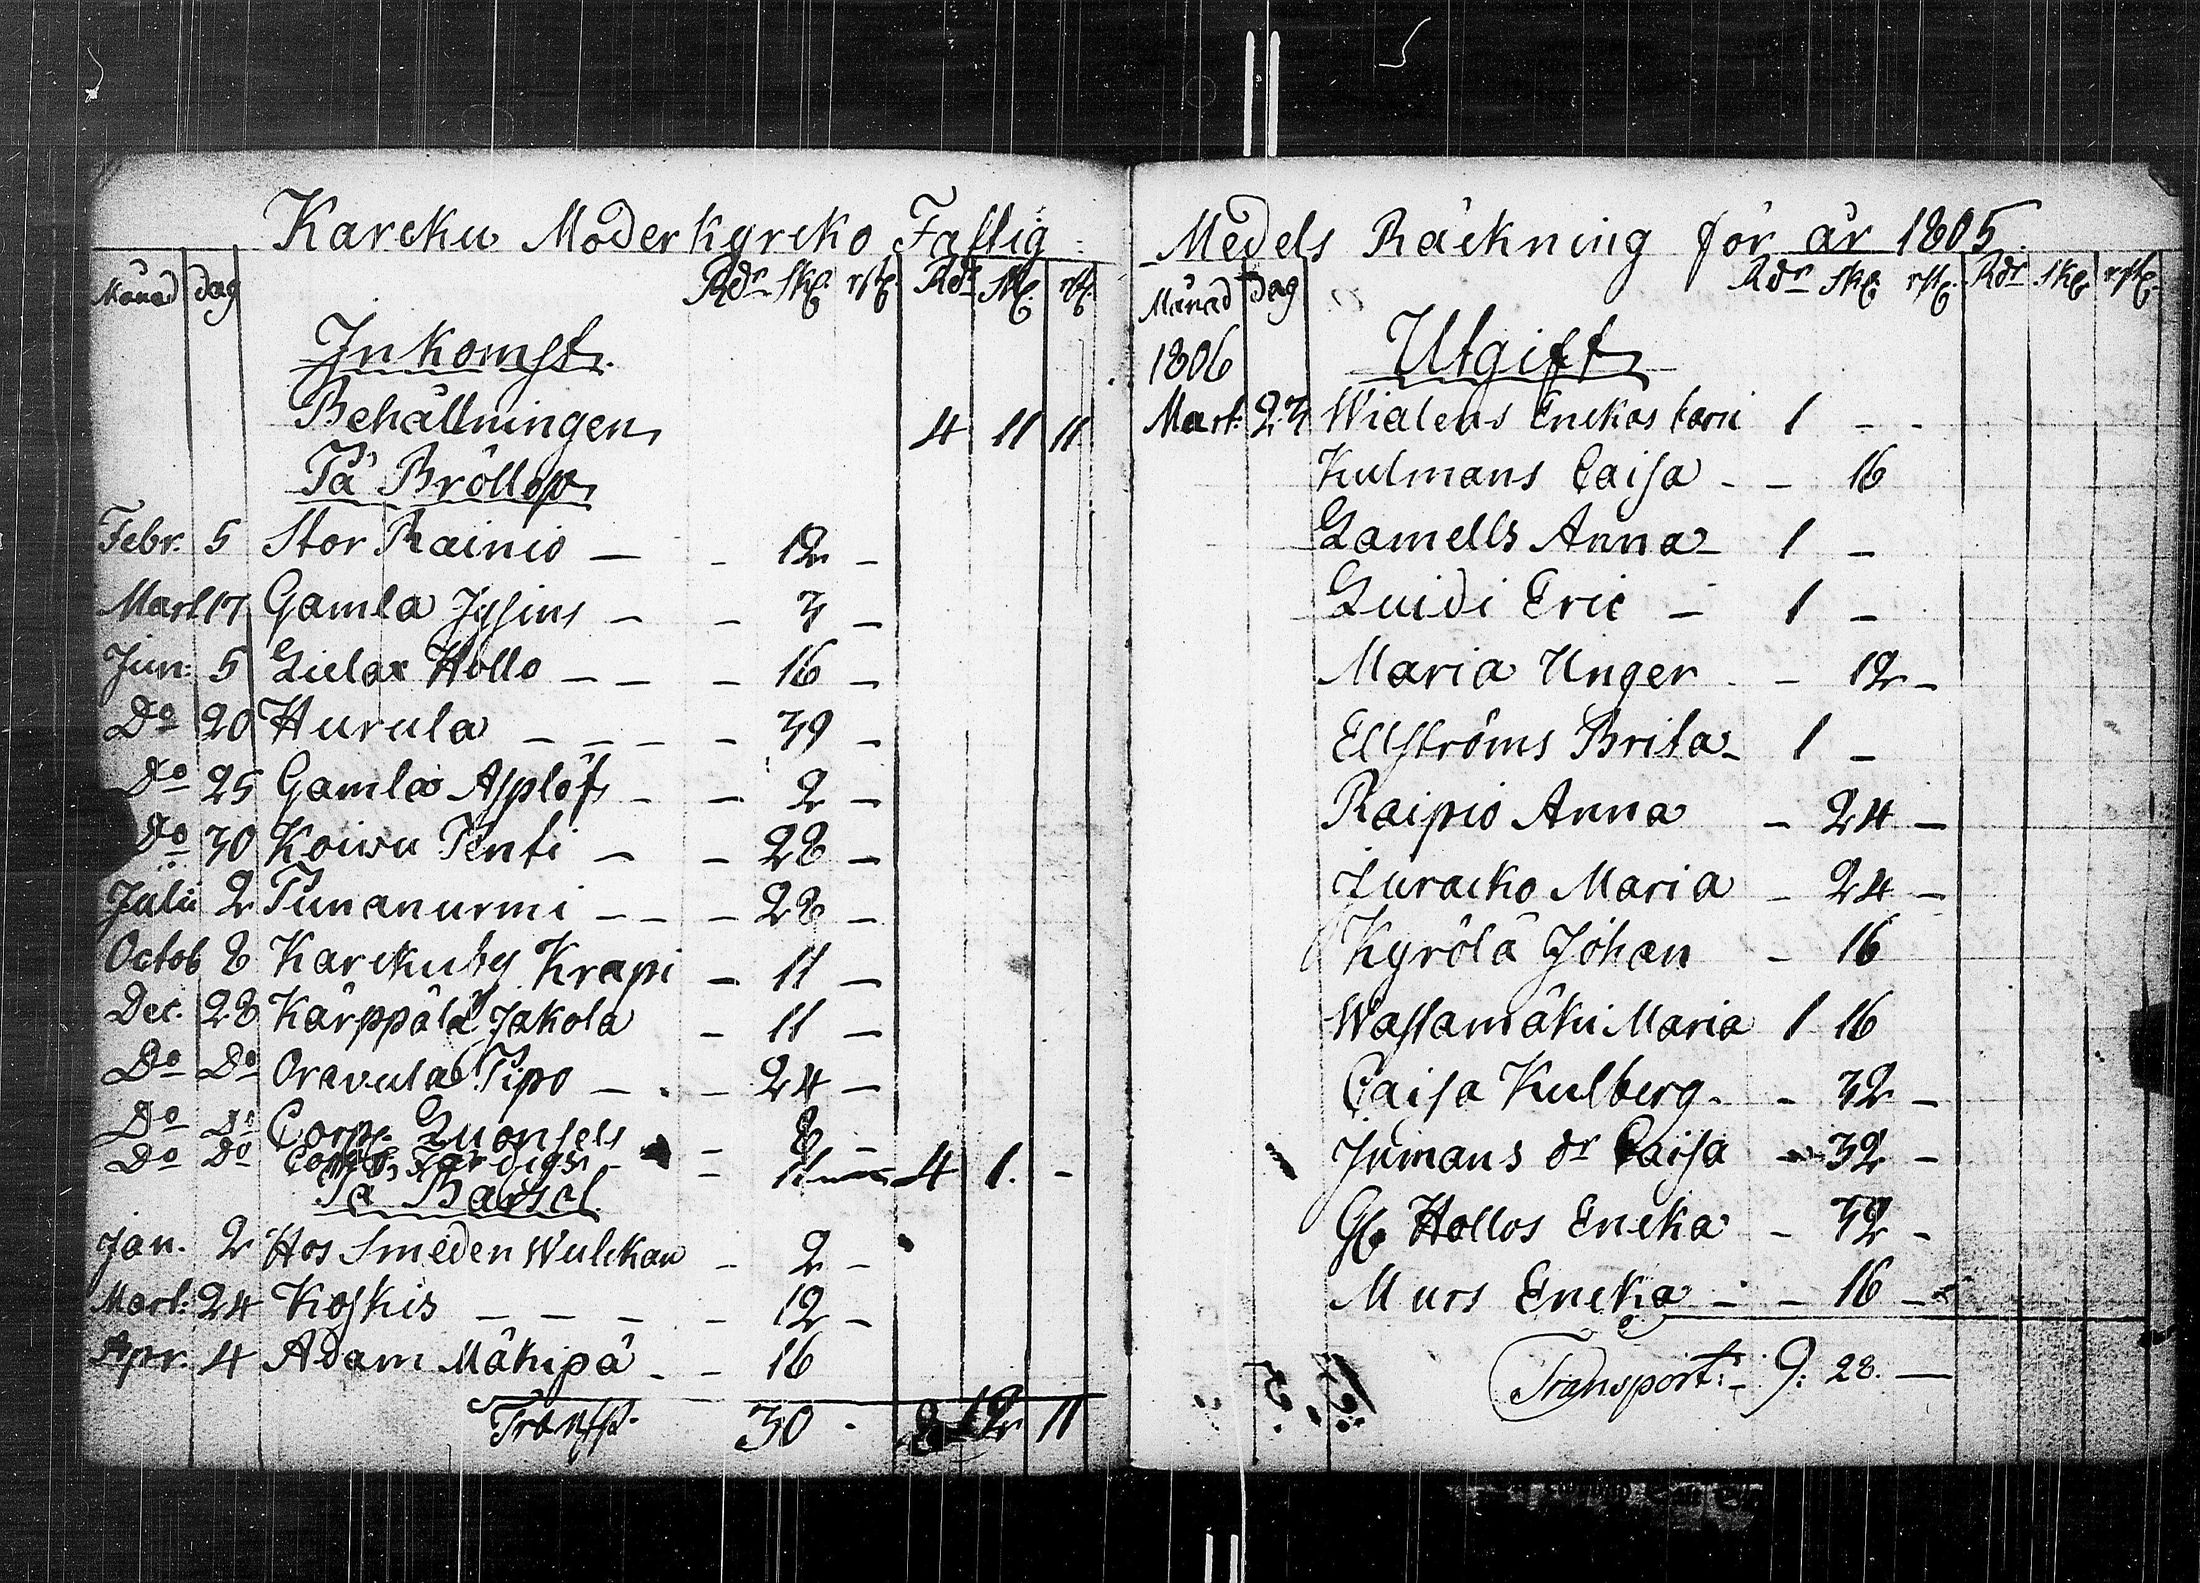 Karcku Moderkyrcko Fattig
Månad dag Rdr Sk. rst. Rdr Sk. rst.
Inkomst.
Behållningen 4 11 11
På Bröllop
Febr. 5 Stor Rainio — - 12 -
Mart 17 Gamla - - 3 -
Jun: 5 Hollo - - - 16 -
Do 20 Hurula - - - - 39 -
Do 25 Gamla Asplöf - - 2 -
Do 30 Koivu Penti - - 28 -
Julii 2 Tunanurmi - - - 28 -
Octob 8 Karckuby Krapi - 11 -
Dec. 28 Kärppälä Jakola - 11 -
Do Do Oravula Pipo - . - 24 -
Do Do Corp. - 8 -
Do Do - 11 4 1. -
På Barsel
Jan. 2 Hos Smeden Wulckan - 2 -
Mart: 24 Koskis - - - - 12 -
Apr. 4 Adam Mäkipä - - 16
Transp. 30 - 8 12 11
Medels Räckning för år 1805.
Månad dag Rdr Sk. rst. Rdr Sk. rst.
1806 Utgift
Mart: 23 Enckas 1 - -
Kulmans Caisa - - 16
Lamells Anna - 1 -
Luidi Eric - 1 -
Maria Unger - - 12 -
Ellströms Brita - 1 -
Raipio Anna - 24 -
Juracko Maria - 24 -
Kyrölä Johan - 16
Wastamäki Maria 1 16
Caisa Kulberg - - 32 -
Jumans dr Caisa - 32 -
Hollos Encka - 32 -
Murs Encka - - 16 -
Transport: - 9: 28. —